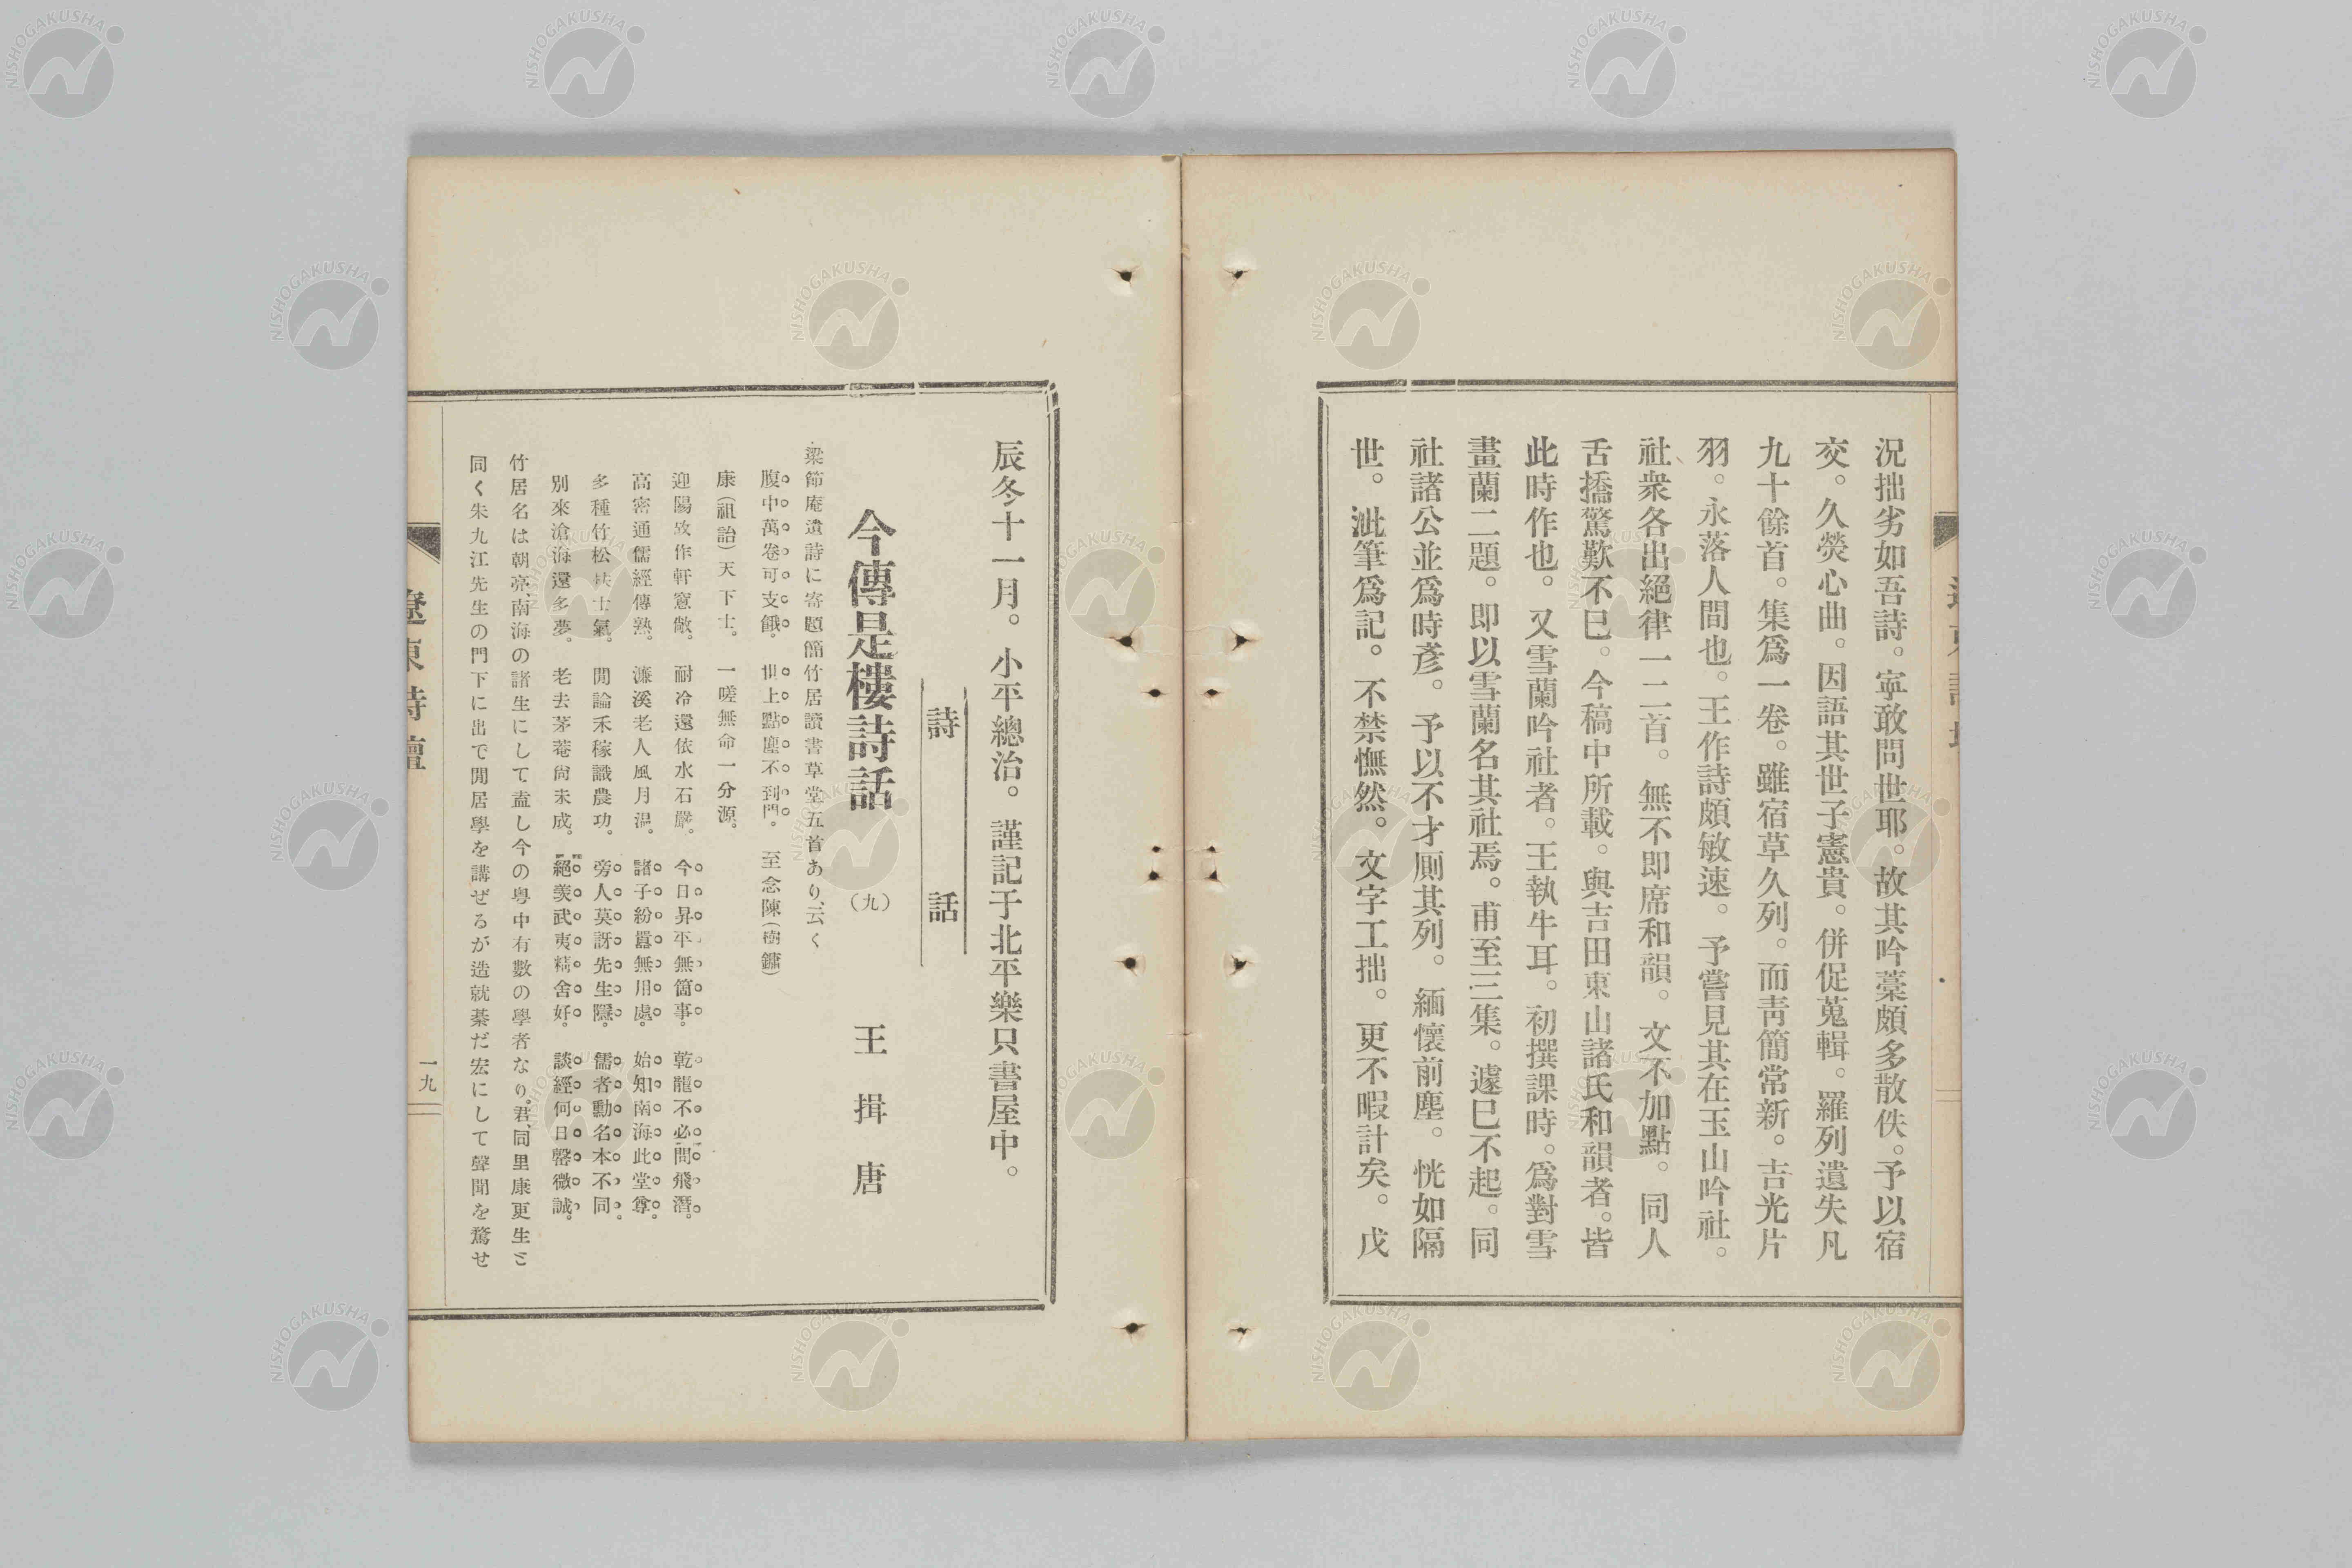 況拙劣如吾詩。寧敢問世耶。故其吟藁頗多散佚。予以宿
交。久熒心曲。因語其世子憲貴。併促蒐輯。羅列遺失凡
九十餘首。集爲一卷。雖宿草久列。而靑簡常新。吉光片
羽。永落人間也。王作詩頗敏速。予嘗見其在玉山吟社。
社衆各出絕律一二首。無不即席和韻。文不加點。同人
舌撟驚歎不已。今稿中所載。與吉田東山諸氏和韻者。皆
此時作也。又雪蘭吟社者。王執牛耳。初撰課時。爲對雪
畫蘭二題。即以雪蘭名其社焉。甫至三集。遽已不起。同
社諸公並爲時彥。予以不才厠其列。緬懷前塵。恍如隔
世。泚筆爲記。不禁憮然。文字工拙。更不暇計矣。戊
辰冬十一月。小平總治。謹記于北平樂只書屋中。
詩話
今傳是樓詩話 (九) 王揖唐
梁節庵遺詩に寄題簡竹居讀書草堂五首あり、云く
腹中萬卷可支餓。世上點塵不到門。至念陳(樹鏞)
康(祖詒)天下士。一嗟無命一分源。
迎陽故作軒窻敞。耐冷還依水石嚴。今日昇平無箇事。乾龍不必問飛潛。
高密通儒經傳熟。濂溪老人風月温。諸子紛囂無用處。始知南海此堂尊。
多種竹松扶士氣。閒論禾稼識農功。旁人莫訝先生隱。儒者勳名本不同。
別來滄海還多夢。老去茅菴尙未成。絕羨武夷精舍好。談經何日罄微誠。
竹居名は朝亮、南海の諸生にして盍し今の粵中有數の學者なり。君、同里康更生と
同く朱九江先生の門下に出で閒居學を講ぜるが造就綦だ宏にして聲聞を騖せ
遼東詩壇
一九
NISHOGAKUSHA